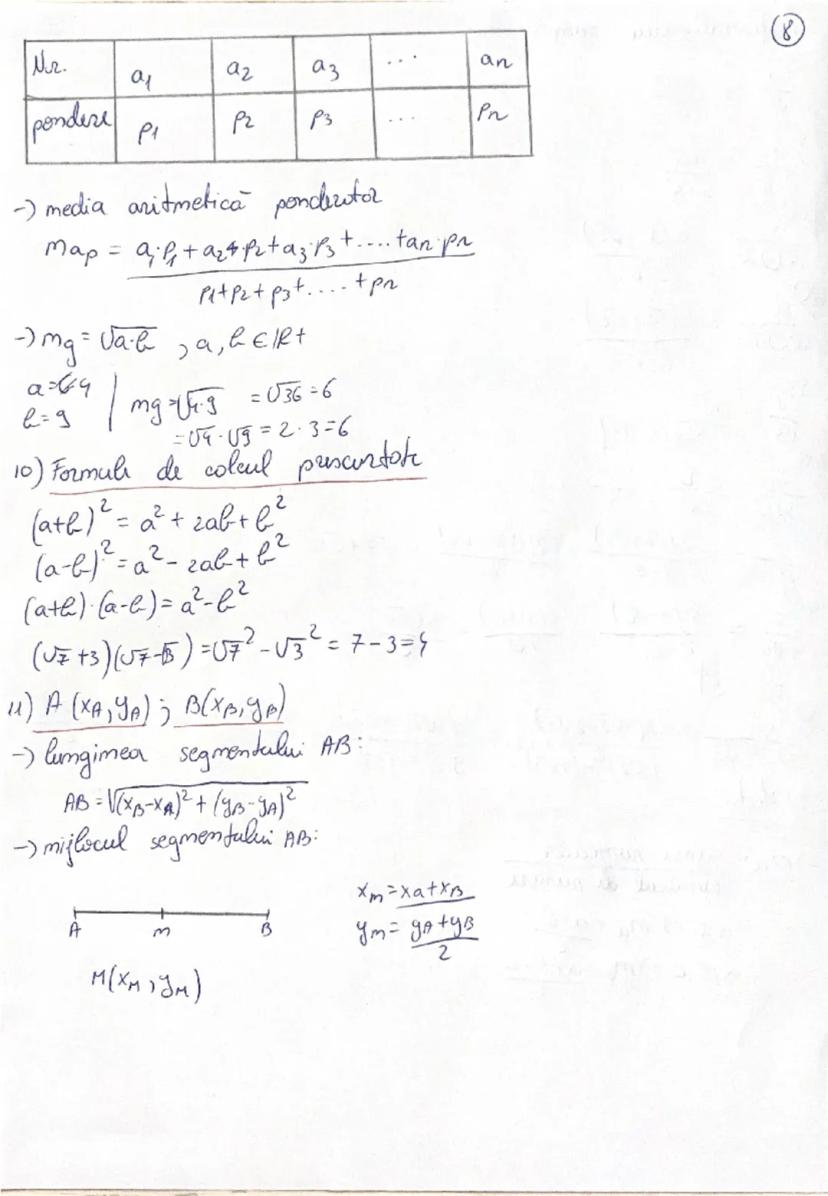 8
Nr. a1 a2 a3 ... an
pondere p1 p2 p3 ... pn
-) media aritmetică ponderator
map = a1·p1 + a2·p2 + a3·p3 + .... + an·pn
p1+p2+p3+ .... + pn
-) mg = √a·b , a, b ∈ IR+
a = 4
b = 9 | mg = √4·9 = √36 = 6
= √4 · √9 = 2 · 3 = 6
10) Formule de calcul prescurtate
(a+b)² = a² + 2ab + b²
(a-b)² = a² - 2ab + b²
(a+b)·(a-b) = a² - b²
(√7 + 3)(√7 - √3) = √7² - √3² = 7 - 3 = 4
11) A (xA, yA) ; B(xB, yB)
-) lungimea segmentului AB:
AB = √(xB-xA)² + (yB-yA)²
-) mijlocul segmentului AB:
xm = xa + xB
A m B
ym = yA + yB
2
M(xM, yM)